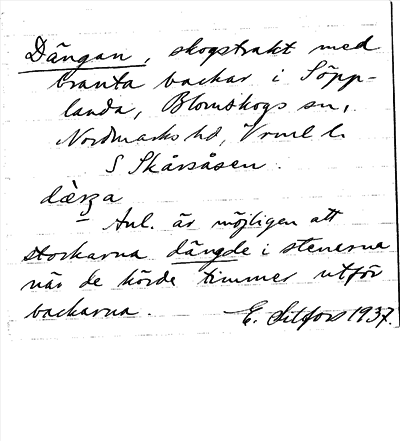 Dängan, skogstrakt med
branta backar i Söpp-
landa, Blomskogs sn,
Nordmarks hd, Vrml l.
S Skårsåsen.
Anl. är möjligen att
stockarna dängde i stenarna
när de körde timmer utför
backarna.
E. Sitfors 1937.